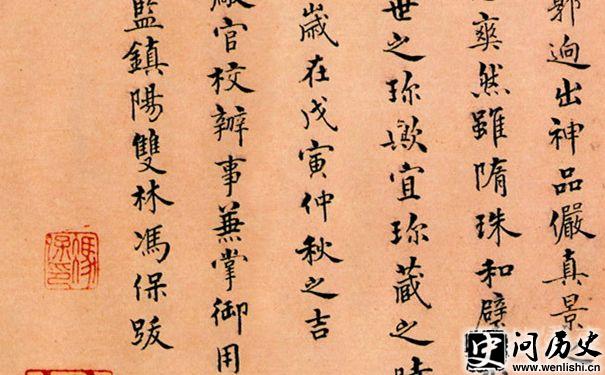 郭迥出神品儼真景
爽然雖隋珠和璧
世之珍歟宜珍藏之時
歲在戊寅仲秋之吉
廠官校辦事兼掌御用
監鎮陽雙林馮保跋
问历史
www.wenlishi.cn